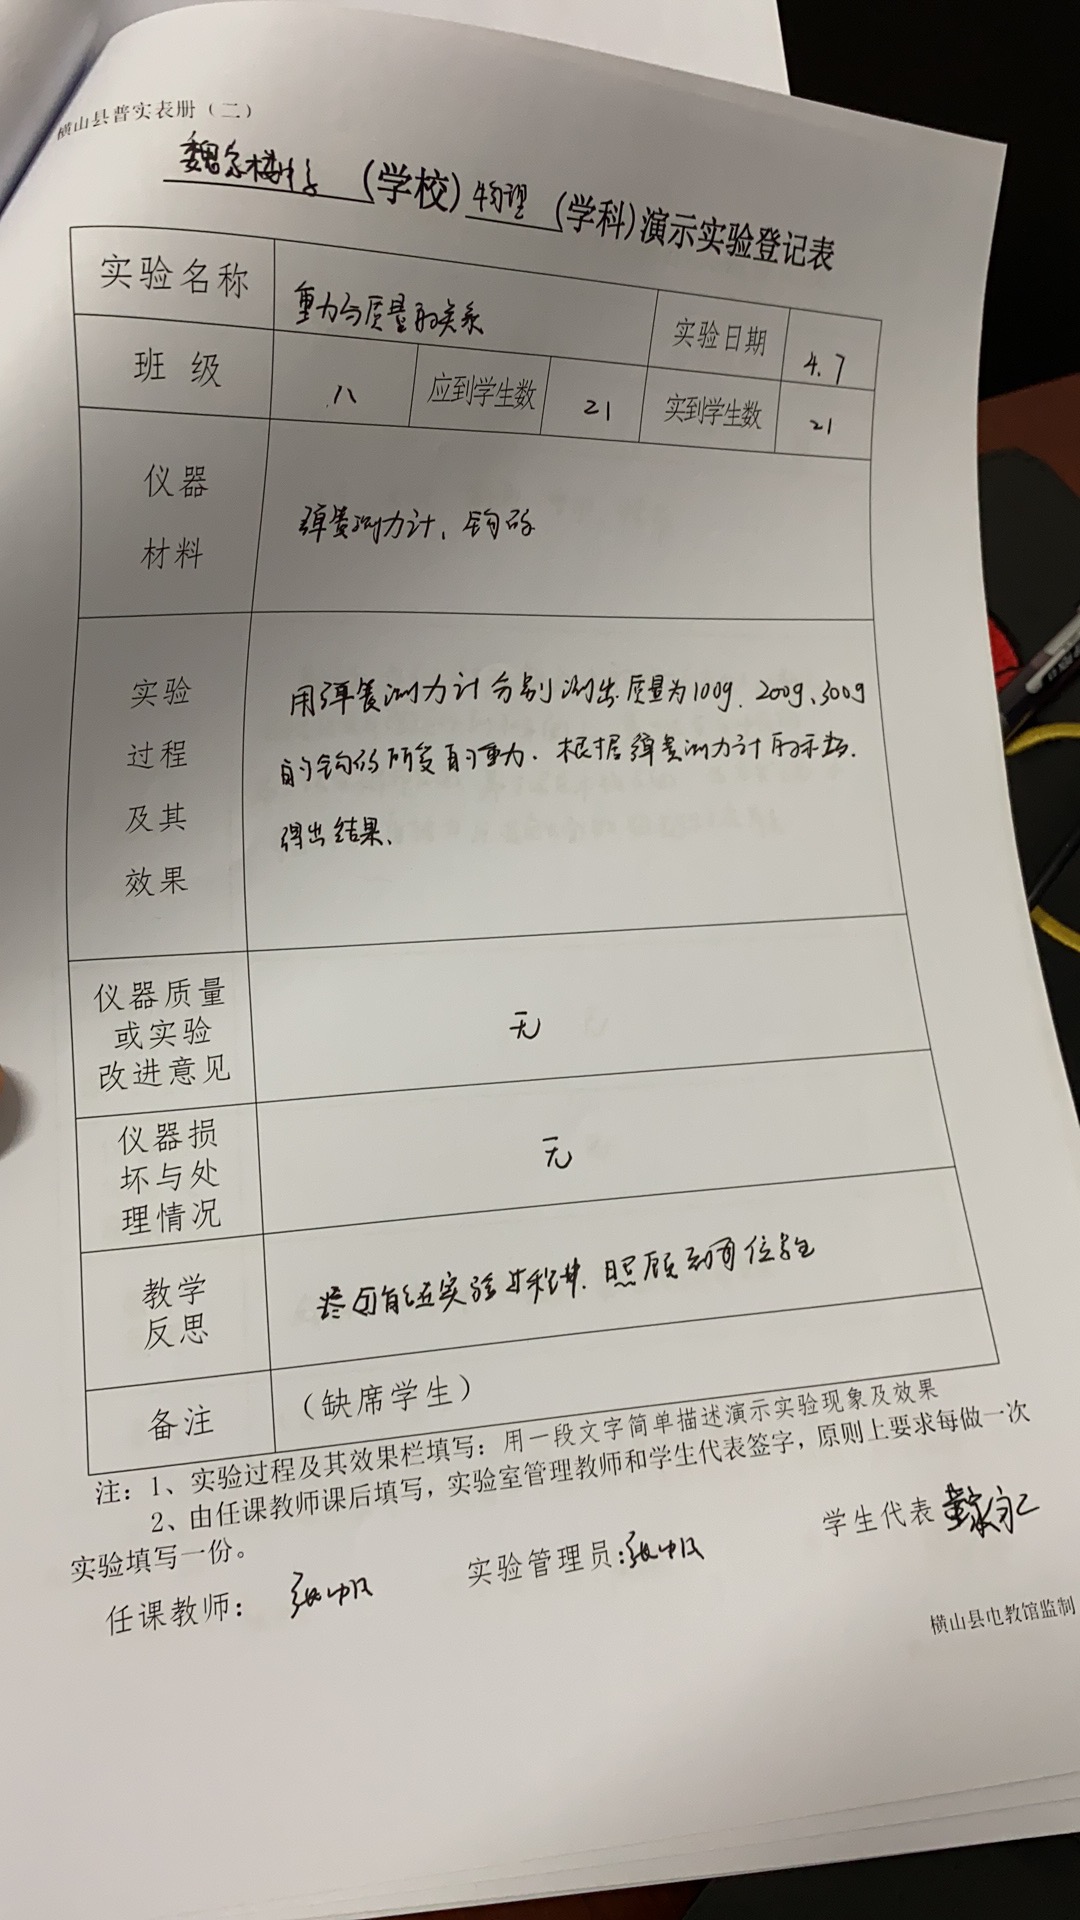 横山县普实表册（二）
魏家楼中学（学校）物理（学科）演示实验登记表
实验名称 重力与质量的关系 实验日期 4.7
班级 八 应到学生数 21 实到学生数 21
仪器
材料
弹簧测力计、钩码
实验
过程
及其
效果
用弹簧测力计分别测出质量为100g、200g、300g
的钩码所受的重力.根据弹簧测力计的示数.
得出结果、
仪器质量
或实验
改进意见
无
仪器损
坏与处
理情况
无
教学
反思
尽可能在实验过程中.照顾到每位学生
备注 （缺席学生）
注：1、实验过程及其效果栏填写：用一段文字简单描述演示实验现象及效果
2、由任课教师课后填写，实验室管理教师和学生代表签字，原则上要求每做一次
实验填写一份。
任课教师：
实验管理员：
学生代表
横山县电教馆监制